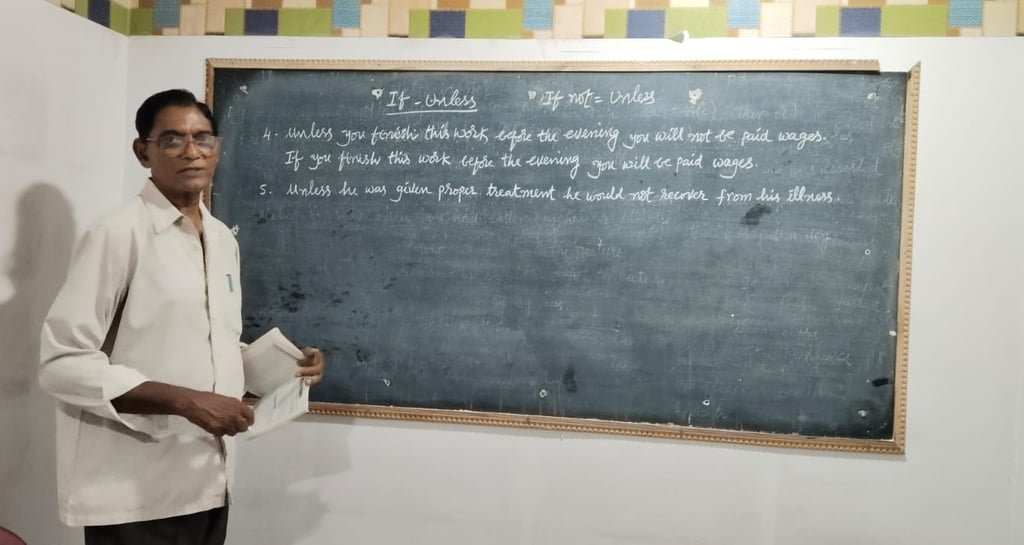 If - Unless If not = Unless
4. Unless you finish this work before the evening you will not be paid wages.
If you finish this work before the evening you will be paid wages.
5. Unless he was given proper treatment he would not recover from his illness.